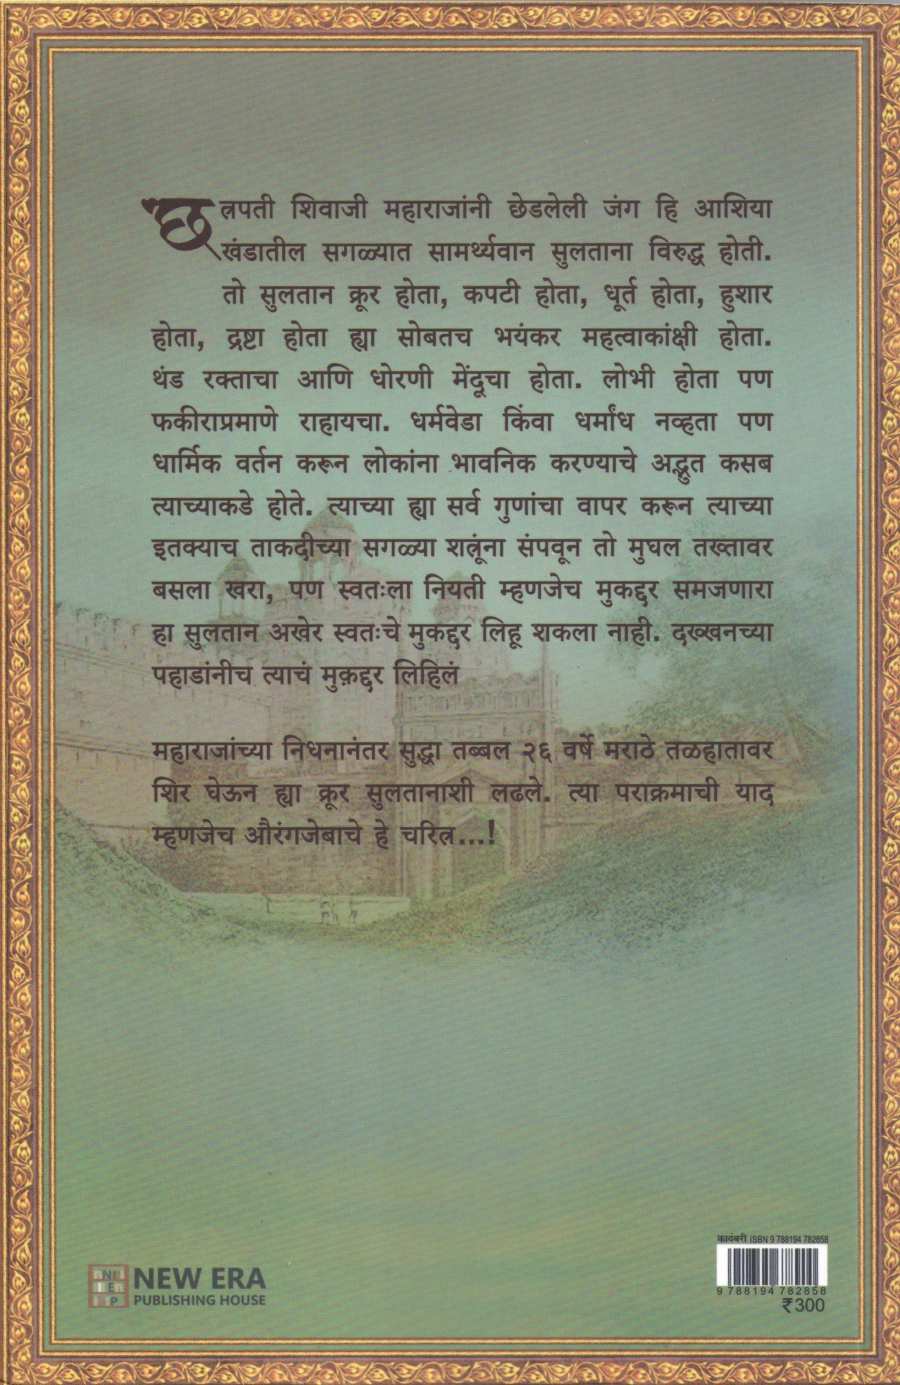 छत्रपती शिवाजी महाराजांनी छेडलेली जंग हि आशिया
खंडातील सगळ्यात सामर्थ्यवान सुलताना विरुद्ध होती.
तो सुलतान क्रूर होता, कपटी होता, धूर्त होता, हुशार
होता, द्रष्टा होता ह्या सोबतच भयंकर महत्वाकांक्षी होता.
थंड रक्ताचा आणि धोरणी मेंदूचा होता. लोभी होता पण
फकीराप्रमाणे राहायचा. धर्मवेडा किंवा धर्मांध नव्हता पण
धार्मिक वर्तन करून लोकांना भावनिक करण्याचे अद्भुत कसब
त्याच्याकडे होते. त्याच्या ह्या सर्व गुणांचा वापर करून त्याच्या
इतक्याच ताकदीच्या सगळ्या शत्रूंना संपवून तो मुघल तख्तावर
बसला खरा, पण स्वतःला नियती म्हणजेच मुकद्दर समजणारा
हा सुलतान अखेर स्वतःचे मुकद्दर लिहू शकला नाही. दख्खनच्या
पहाडांनीच त्याचं मुक़द्दर लिहिलं
महाराजांच्या निधनानंतर सुद्धा तब्बल २६ वर्षे मराठे तळहातावर
शिर घेऊन ह्या क्रूर सुलतानाशी लढले. त्या पराक्रमाची याद
म्हणजेच औरंगजेबाचे हे चरित्र...!
कादंबरी ISBN 9 788194 782858
9 788194 782858
₹300
NEW ERA
PUBLISHING HOUSE